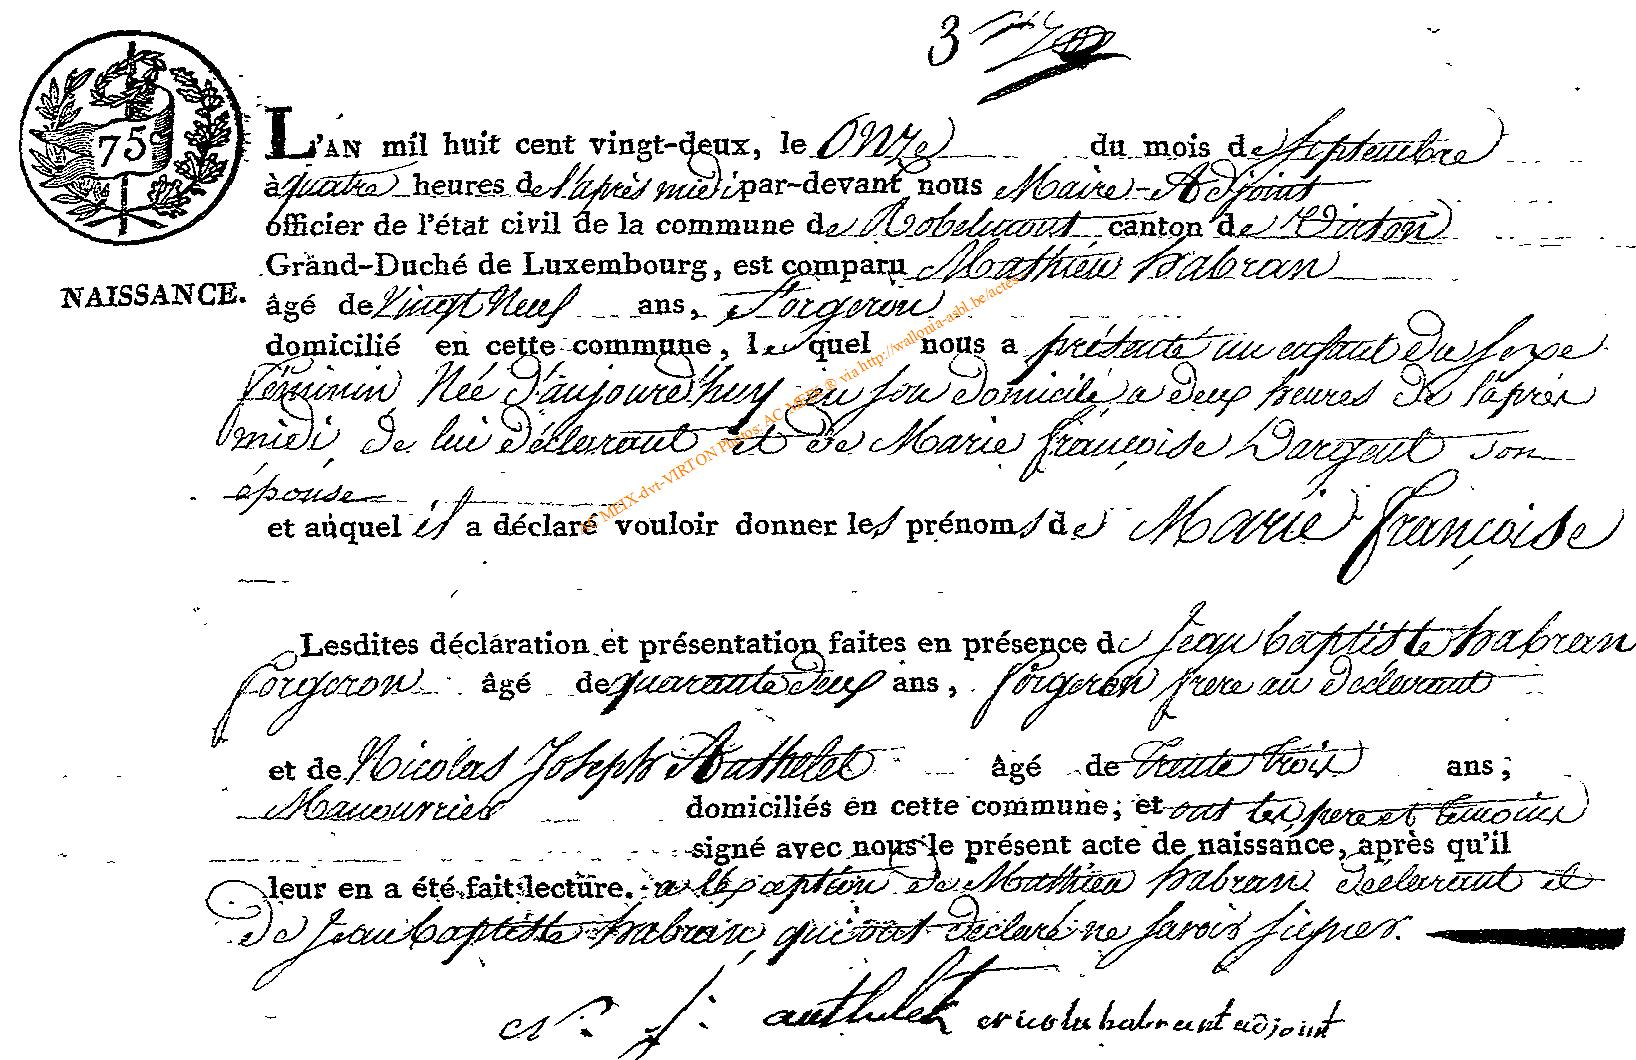 3
75c
L'AN mil huit cent vingt-deux, le Onze du mois de Septembre
à quatre heures de l'après midi par-devant nous Maire-Adjoint
officier de l'état civil de la commune de Robelmont canton de Virton
Grand-Duché de Luxembourg, est comparu Mathieu habran
NAISSANCE.
âgé de Vingt Neuf ans, Forgeron
domicilié en cette commune, lequel nous a présenté un enfant du Sexe
féminin Née d'aujourd'huy en son domicile a deux heures de l'après
midi, de lui déclarant et de Marie françoise Dargent son
épouse
et auquel il a déclaré vouloir donner les prénoms de Marie françoise
Lesdites déclaration et présentation faites en présence de Jean baptiste habran
forgeron âgé de quarante deux ans, forgeron frere au déclarant
et de Nicolas Joseph Authelet âgé de trente trois ans;
Manouvrier domiciliés en cette commune; et ont les pere et temoins
signé avec nous le présent acte de naissance, après qu'il
leur en a été fait lecture. a l'exception de Mathieu habran déclarant et
de Jean baptiste habran, qui ont déclaré ne savoir signer.
N. J. authelet nicola habrant adjoint
MEIX-dvt-VIRTON Photos: AC MEIX ® via http://wallonia-asbl.be/actes